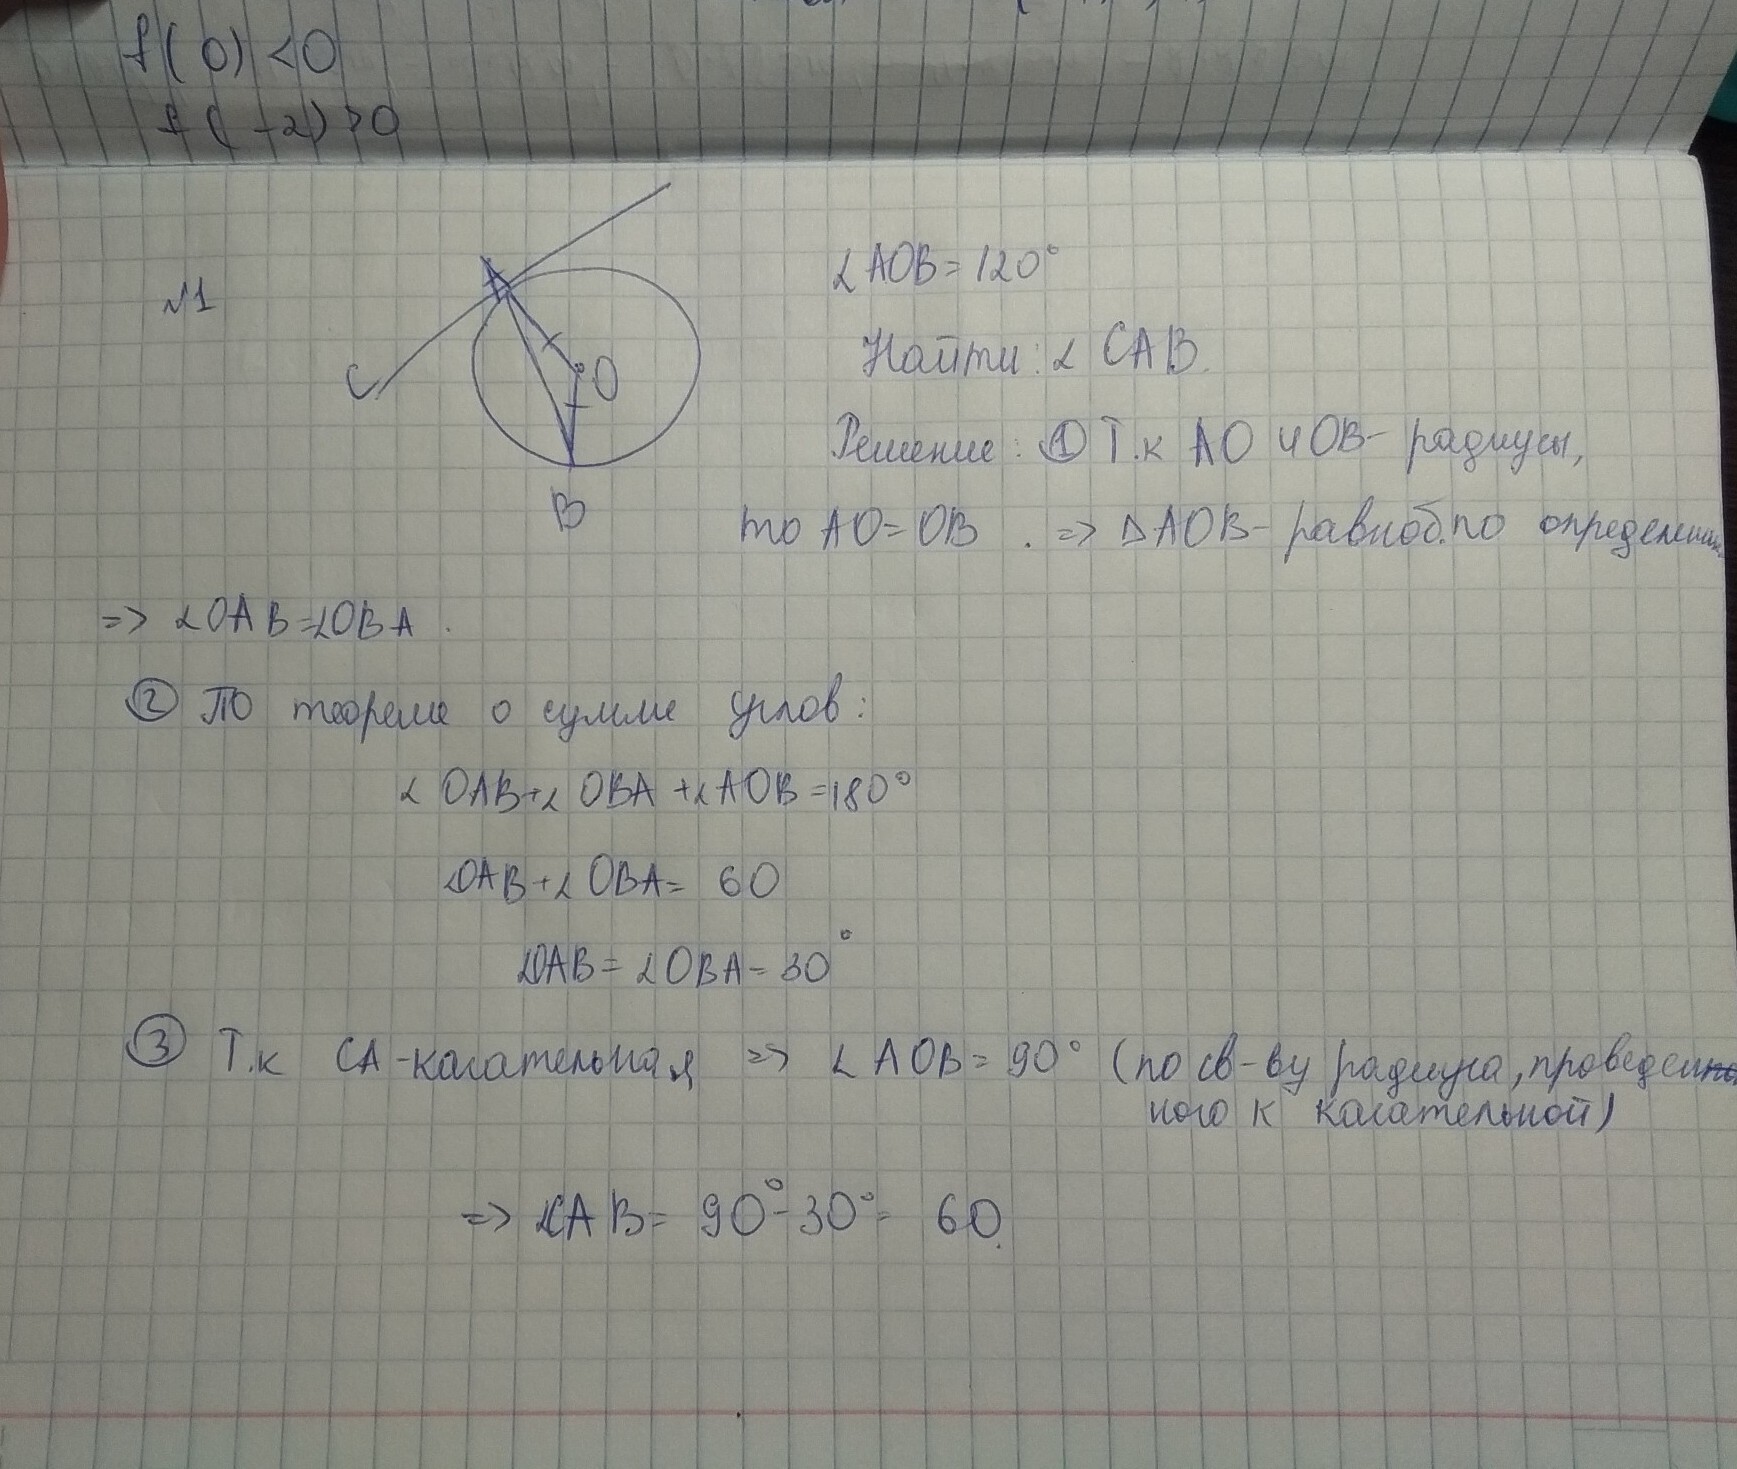 f(0) <0
f(-2)>0
№1
A
C
O
B
∠AOB=120°
Найти: ∠ CAB.
Решение: ① Т.к AO и OB- радиусы,
то AO=OB . => ΔAOB- равноб. по определению
=> ∠OAB=∠OBA .
② По теореме о сумме углов:
∠ OAB+∠ OBA +∠AOB =180°
∠OAB+∠ OBA= 60
∠OAB= ∠OBA= 30°
③ Т.к CA-касательная => ∠ AOB= 90° (по св-ву радиуса, проведен
ного к касательной)
=> ∠CAB= 90°-30°= 60.